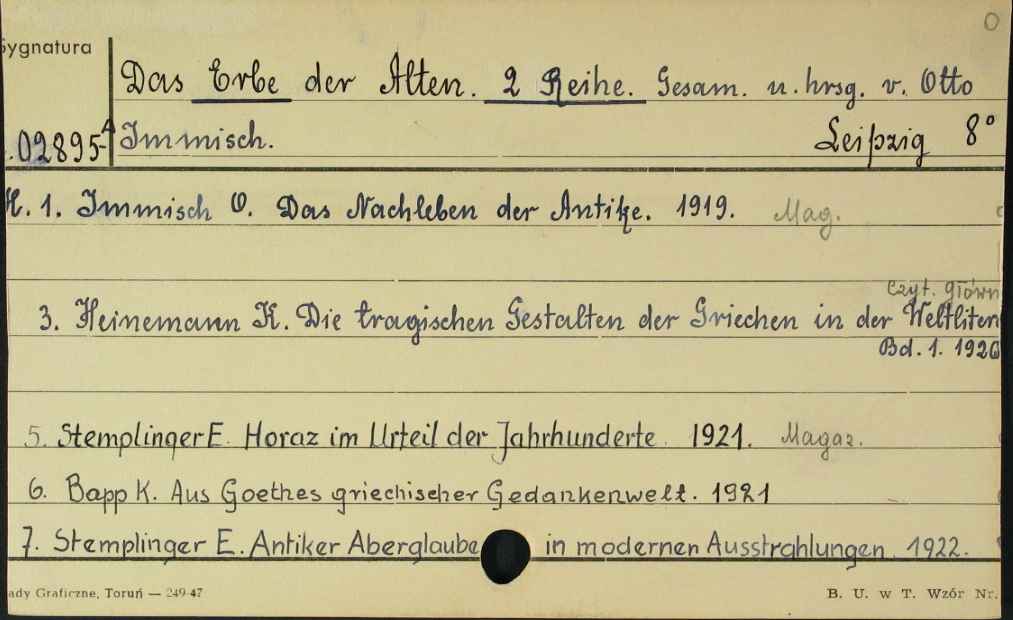 0
Sygnatura
Das Erbe der Alten. 2 Reihe. Gesam. u. hrsg. v. Otto
.02895-A Immisch. Leipzig 8°
H. 1. Immisch O. Das Nachleben der Antike. 1919. Mag.
Czyt. główn
3. Heinemann K. Die tragischen Gestalten der Griechen in der Weltliter
Bd. 1. 1920
5. Stemplinger E. Horaz im Urteil der Jahrhunderte 1921. Magaz.
6. Bapp K. Aus Goethes griechischer Gedankenwelt. 1921
7. Stemplinger E. Antiker Aberglaube in modernen Ausstrahlungen 1922.
ady Graficzne, Toruń — 249-47 B. U. w T. Wzór Nr.